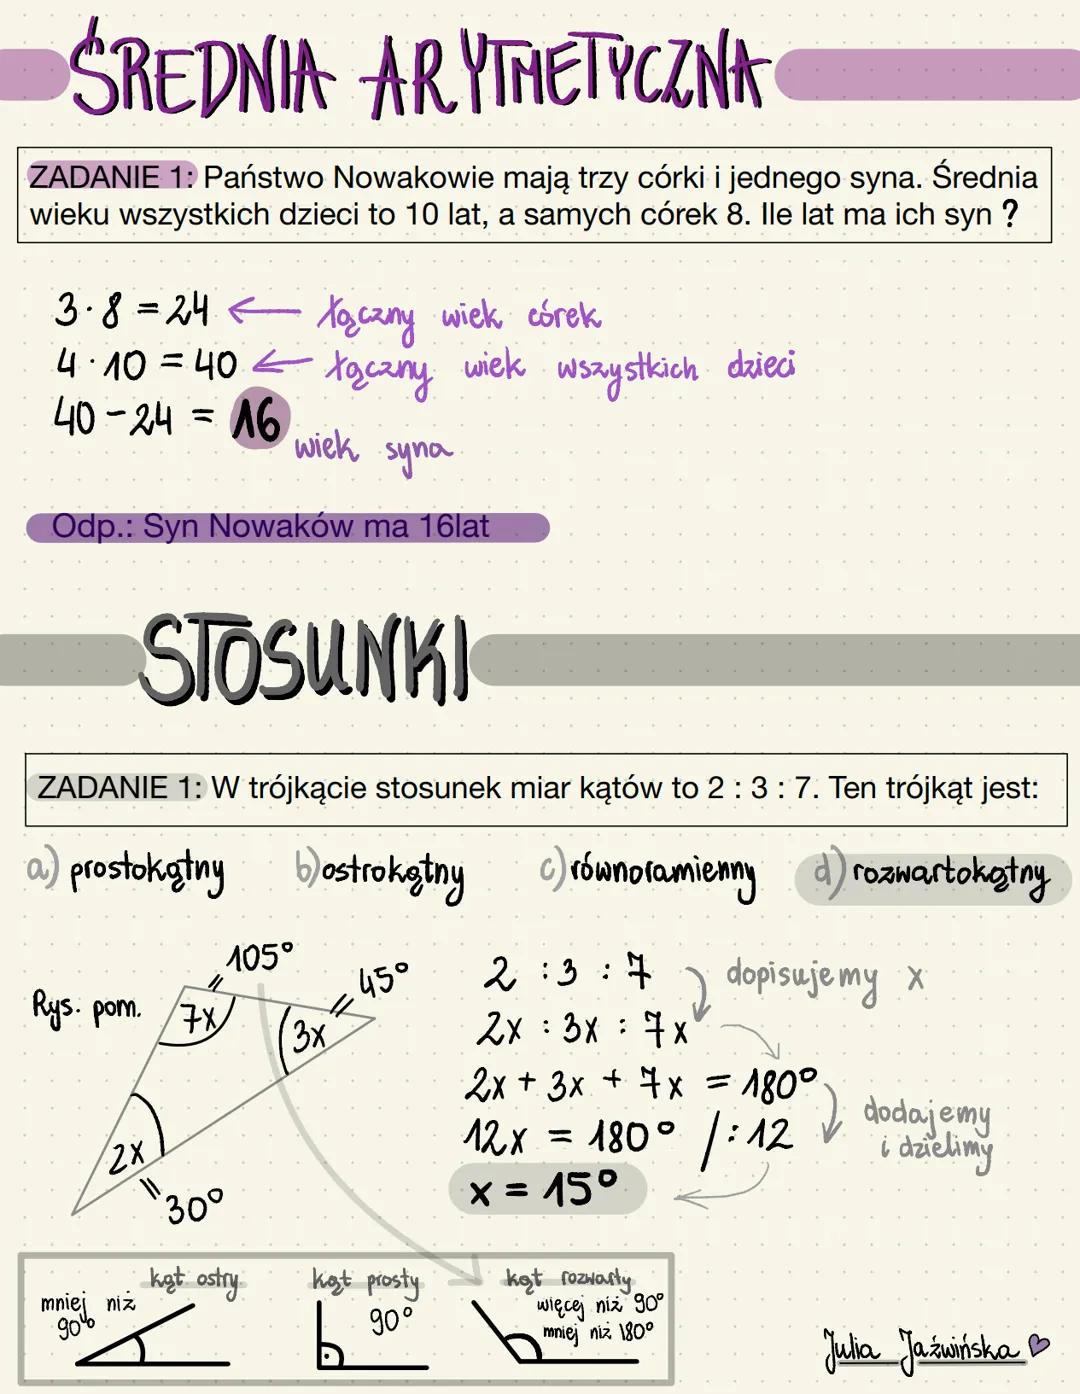 ŚREDNIA ARYTMETYCZNA
ZADANIE 1: Państwo Nowakowie mają trzy córki i jednego syna. Średnia
wieku wszystkich dzieci to 10 lat, a samych córek 8. Ile lat ma ich syn ?
3·8 = 24 ← łączny wiek córek
4·10 = 40 ← łączny wiek wszystkich dzieci
40 - 24 = 16
wiek syna
Odp.: Syn Nowaków ma 16lat
STOSUNKI
ZADANIE 1: W trójkącie stosunek miar kątów to 2 : 3 : 7. Ten trójkąt jest:
a) prostokątny b) ostrokątny c) równoramienny d) rozwartokątny
Rys. pom.
105°
7x
45°
3x
2x
30°
2 : 3 : 7
dopisujemy x
2x : 3x : 7x
2x + 3x + 7x = 180°
12x = 180° /: 12
dodajemy
i dzielimy
x = 15°
kąt ostry
mniej niż
90°
kąt prosty
90°
kąt rozwarty
więcej niż 90°
mniej niż 180°
Julia Jaźwińska